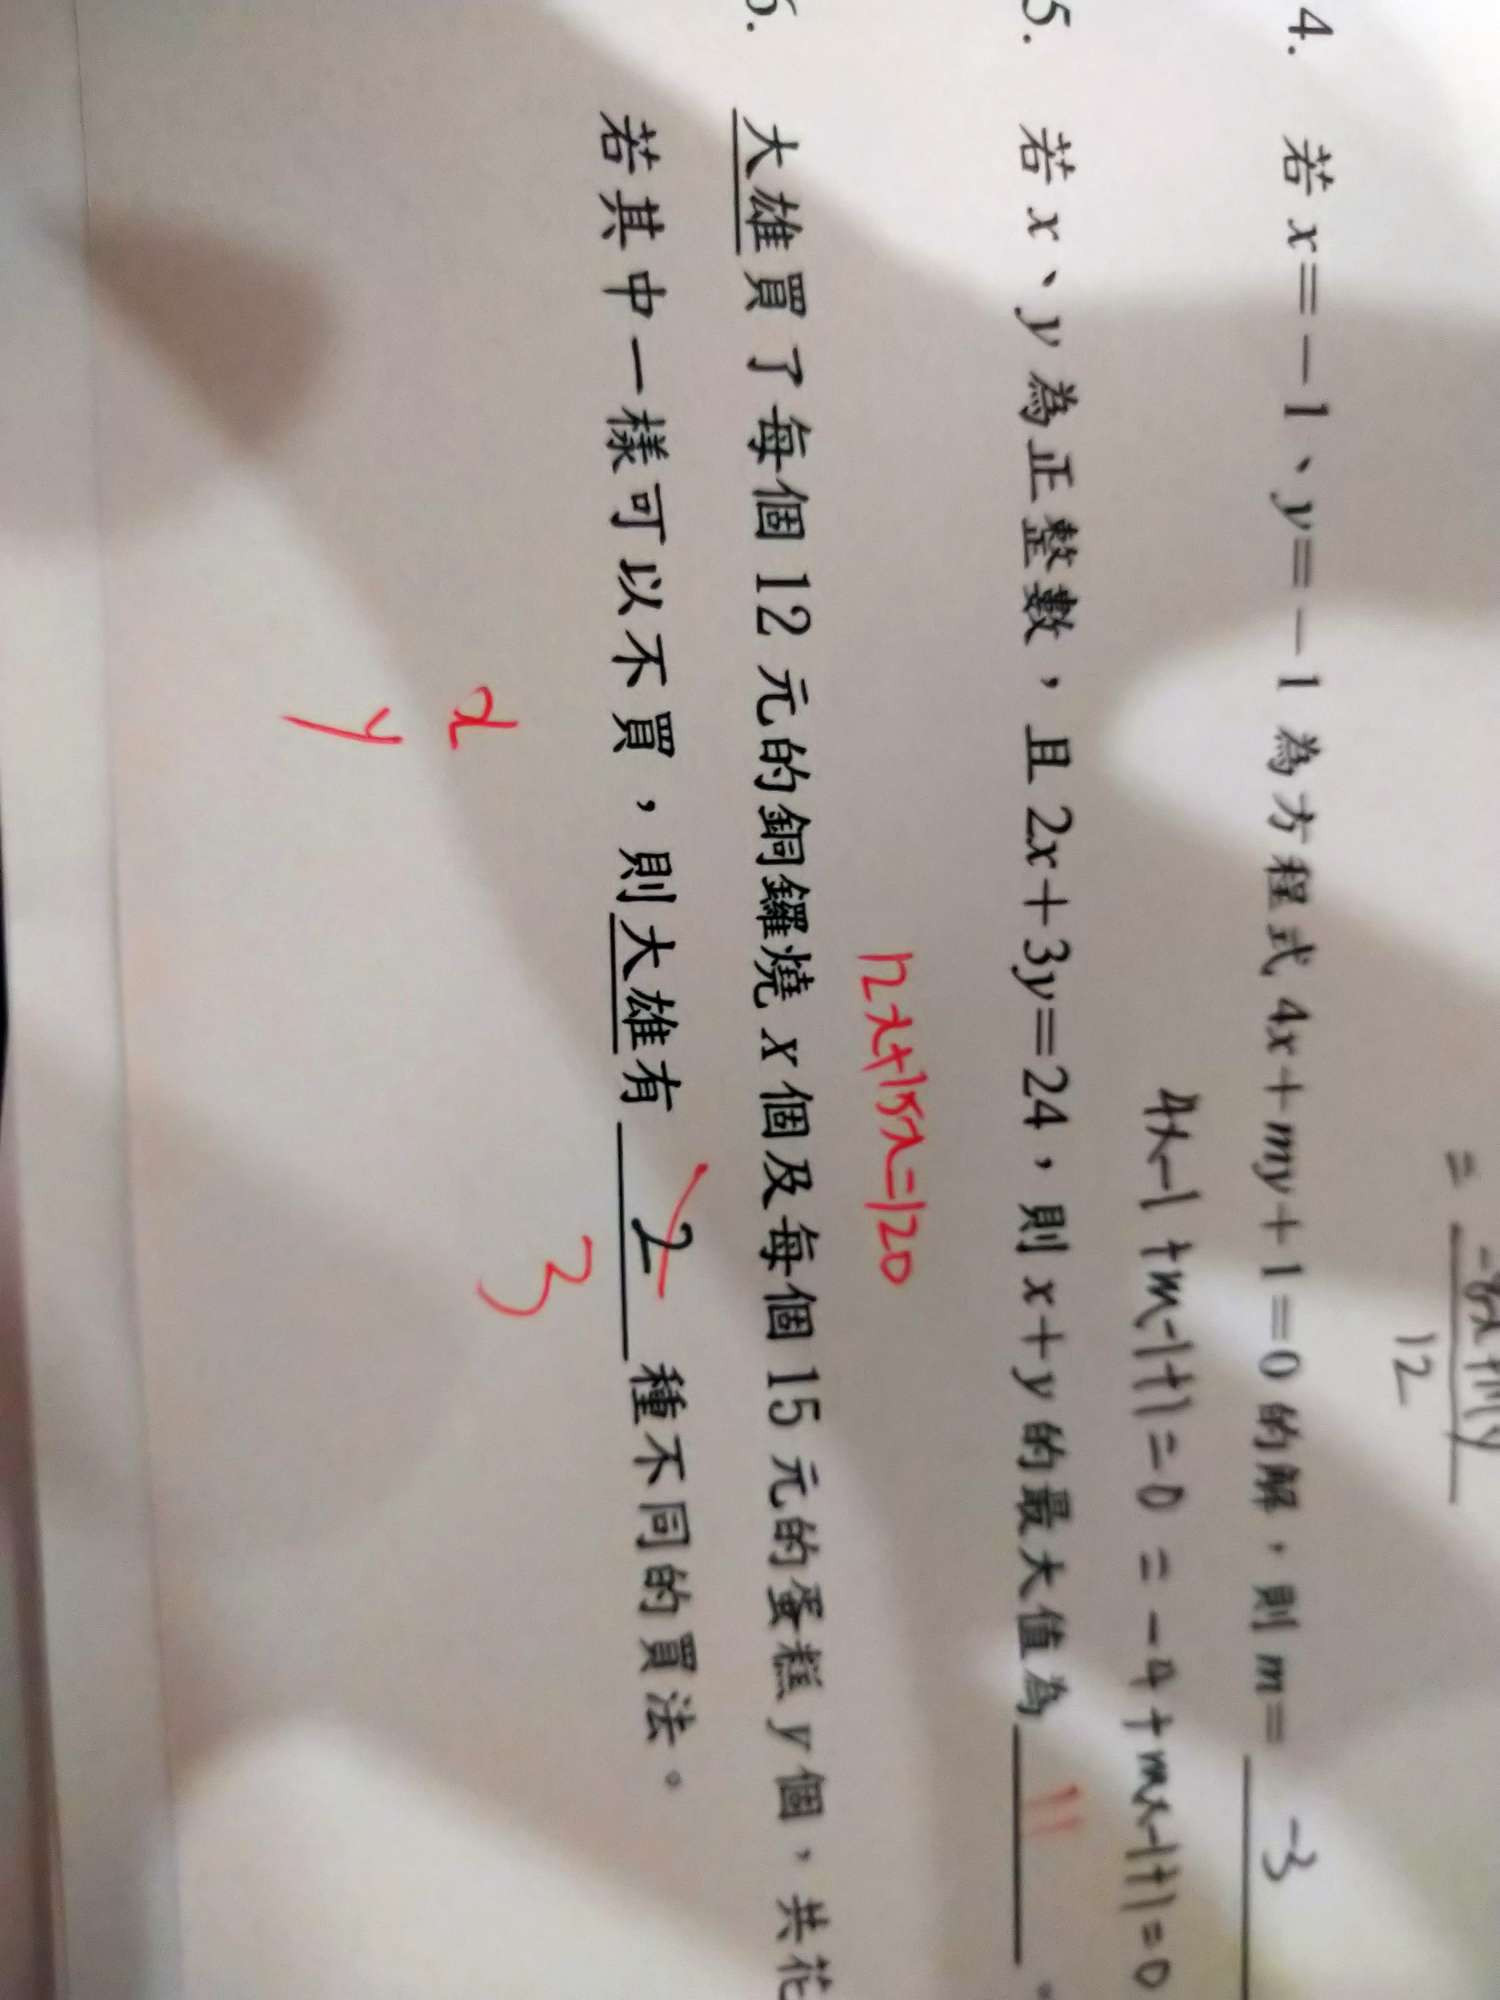 = -8x+11y
12
4. 若 x=-1、y=-1 為方程式 4x+my+1=0 的解，則 m= -3
4x-1+m-1+1=0 = -4+mx-1+1=0
5. 若 x、y 為正整數，且 2x+3y=24，則 x+y 的最大值為 11 。
12x+15x=120
6. 大雄買了每個 12 元的銅鑼燒 x 個及每個 15 元的蛋糕 y 個，共花
若其中一樣可以不買，則大雄有 2 種不同的買法。
3
x
y